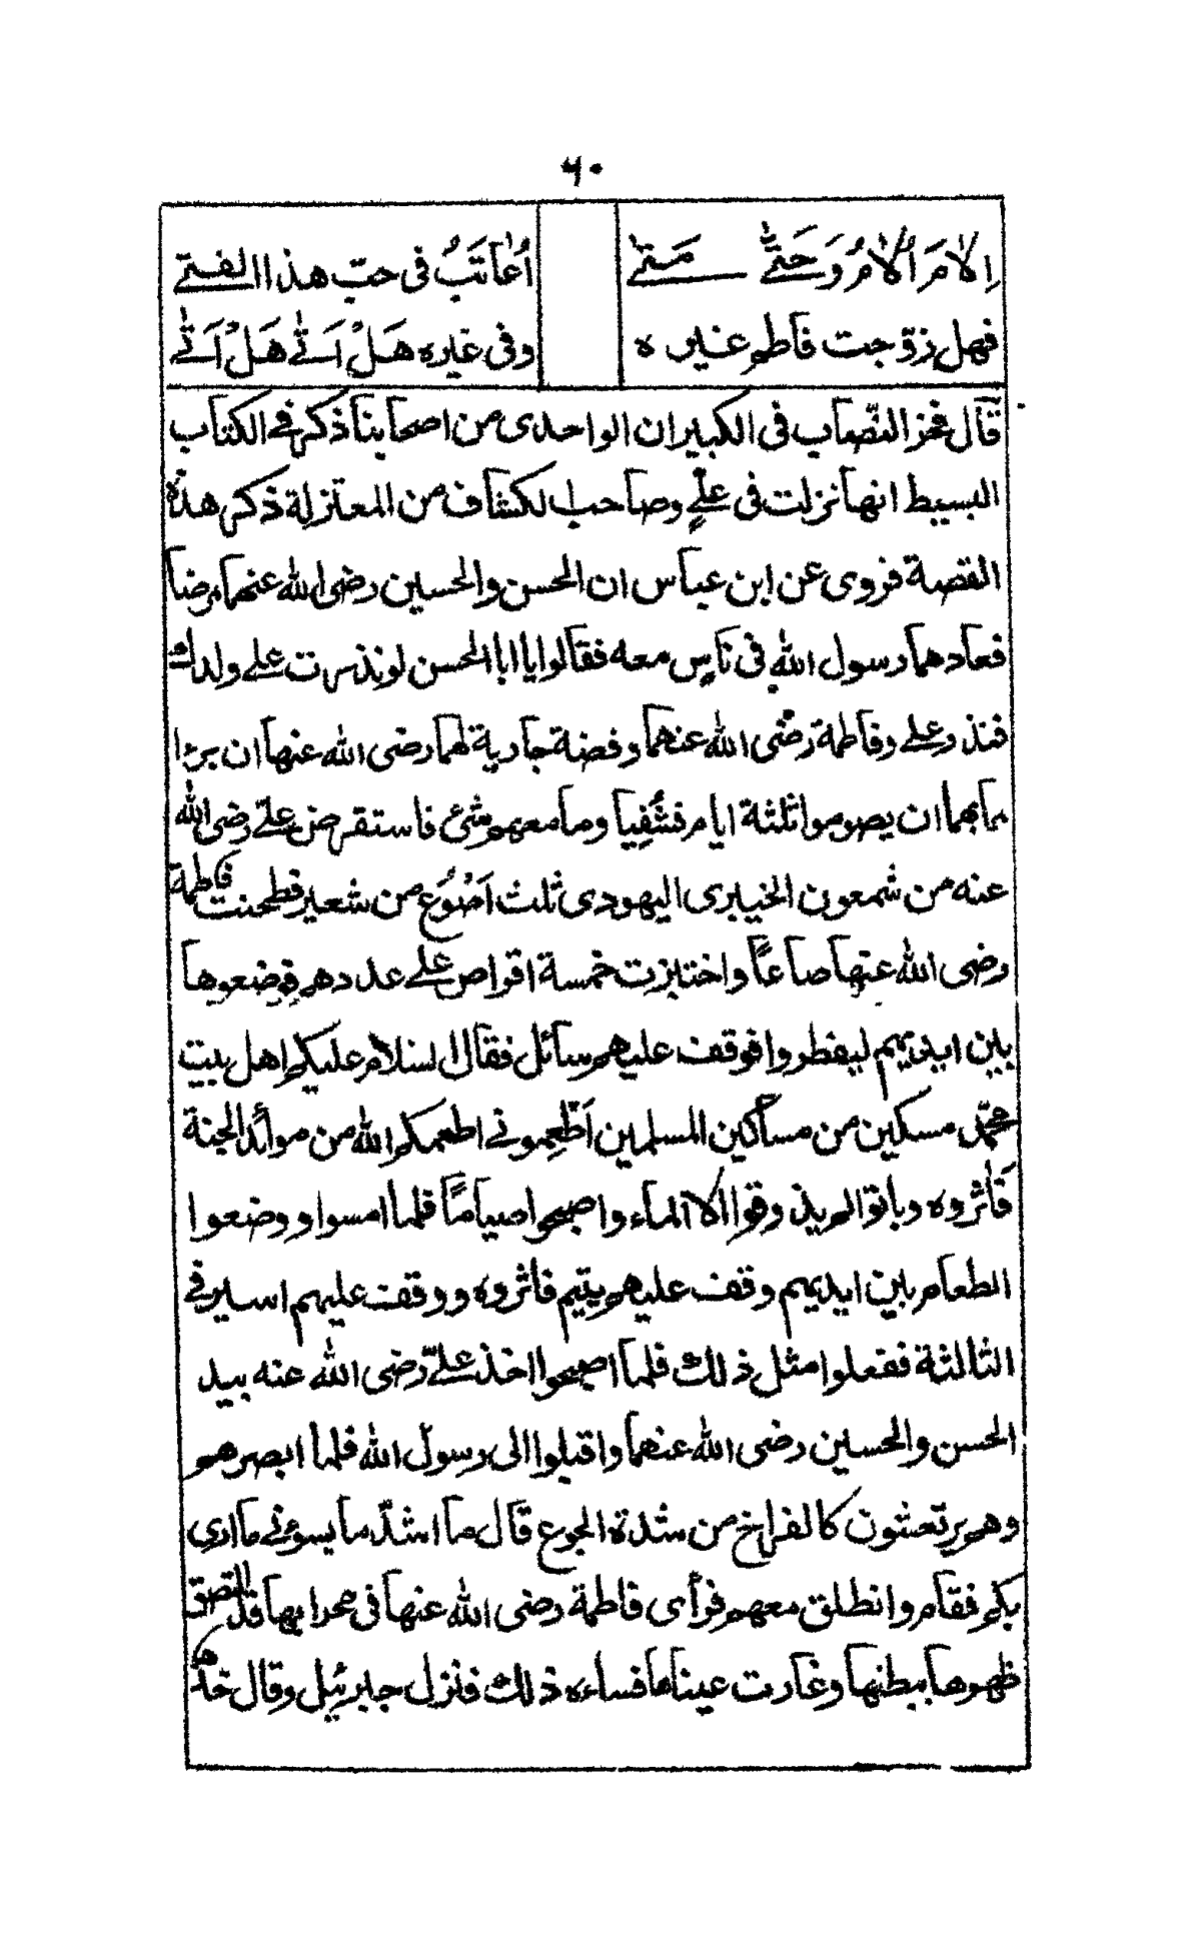 ۶۰
اِلامَ اُلامُ وَحَتّٰی مَتیٰ اُعاتَبُ فی حبّ هذا الفتے
فهل زوّجت فاطم غیره وفی غیره هَلْ اَتٰے هَلْ اَتٰے
قال فخز النّصاب فی الکبیر ان الواحدی من اصحابنا ذکر فے الکتاب
البسیط انها نزلت فی علیٍ وصاحب الکشاف من المعتزلة ذکر هذه
القصة فروی عن ابن عباس ان الحسن والحسین رضی الله عنهما مرضا
فعادهما رسول الله فی ناسٍ معه فقالوا یا ابا الحسن لو نذرت علے ولدك
فنذر علے وفاطمة رضی الله عنهما وفضة جاریة لهما رضی الله عنها ان برٔا
مما بهما ان یصوموا ثلثة ایام فشُفِیا وما معهم شیٔ فاستقرض علےّ رضی الله
عنه من شمعون الخیبری الیهودی ثلث اَصْوُع من شعیر فطحنت فاطمة
رضی الله عنها صاعًا واختبزت خمسة اقراص علے عددهم فوضعوها
بین ایدیهم لیفطروا فوقف علیهم سائل فقال السلام علیکم اهل بیت
محمّد مسکین من مساکین المسلمین اَطْعِمونے اطعمکم الله من موائد الجنة
فَاٰثروه وباتوا لم یذوقوا الا الماء واصبحوا صیامًا فلما امسوا ووضعوا
الطعام بین ایدیهم وقف علیهم یتیم فاٰثروه ووقف علیهم اسیر فے
الثالثة ففعلوا مثل ذلك فلما اصبحوا اخذ علےّ رضی الله عنه بید
الحسن والحسین رضی الله عنهما واقبلوا الی رسول الله فلما ابصرهم
وهم یرتعشون کالفراخ من شدة الجوع قال ما اشدّ ما یسوٴنے ما اری
بکم فقام وانطلق معهم فرأی فاطمة رضی الله عنها فی محرابها قد التصق
ظهرها ببطنها وغارت عیناها فساءه ذلك فنزل جبرئیل وقال خذها